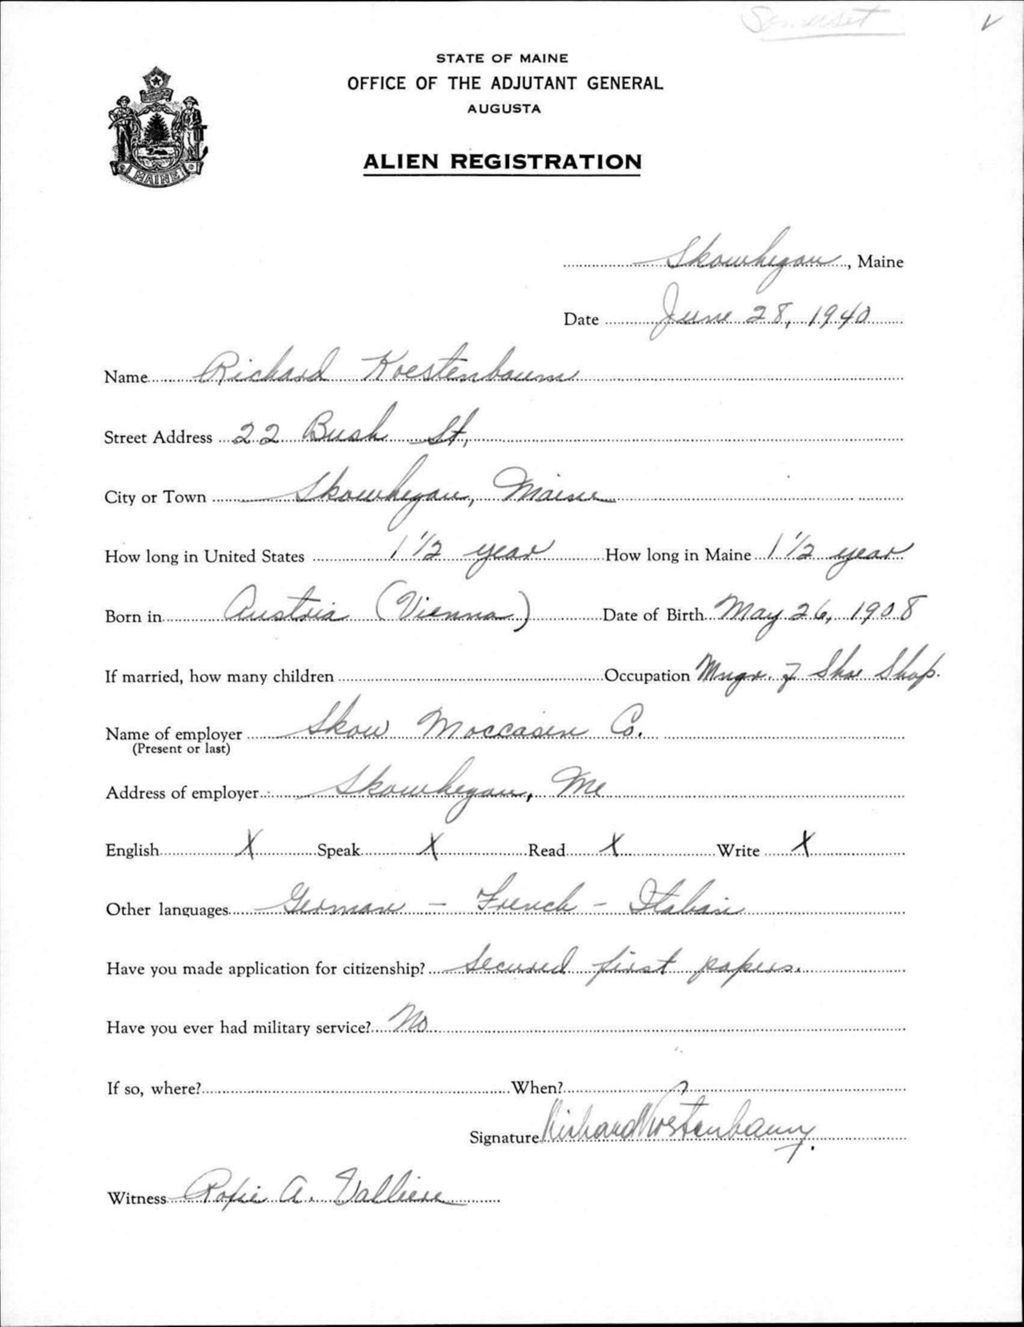 Somerset
STATE OF MAINE
OFFICE OF THE ADJUTANT GENERAL
AUGUSTA
ALIEN REGISTRATION
MAINE
Skowhegan, Maine
Date June 28, 1940
Name Richard Koestenbaum
Street Address 22 Bush St,
City or Town Skowhegan, Maine
How long in United States 1 1/2 year How long in Maine 1 1/2 year
Born in Austria (Vienna) Date of Birth May 26, 1908
If married, how many children Occupation Mngr. of Shoe Shop.
Name of employer Skow Moccasin Co.
(Present or last)
Address of employer Skowhegan, Me
English X Speak X Read X Write X
Other languages German - French - Italian
Have you made application for citizenship? Secured first papers.
Have you ever had military service? No
If so, where? When?
Signature Richard Köstenbaum
Witness A. Valliere